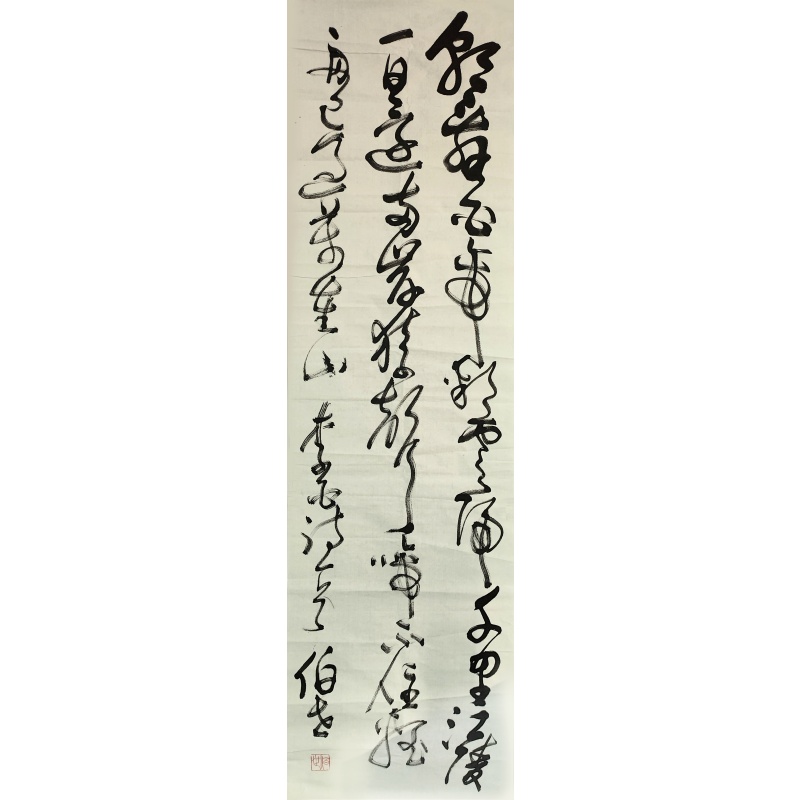 朝辭白帝彩雲間千里江陵
一日還兩岸猿聲啼不住輕
舟已過萬重山 李白詩一首 伯